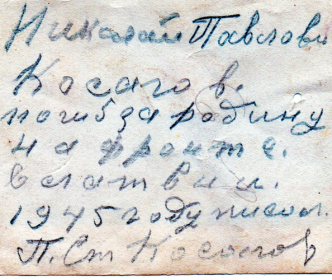 Николай Павлови
Косагов.
погиб за родину
на фронте.
в латвии.
1945 году писал.
П. Ст Косогов